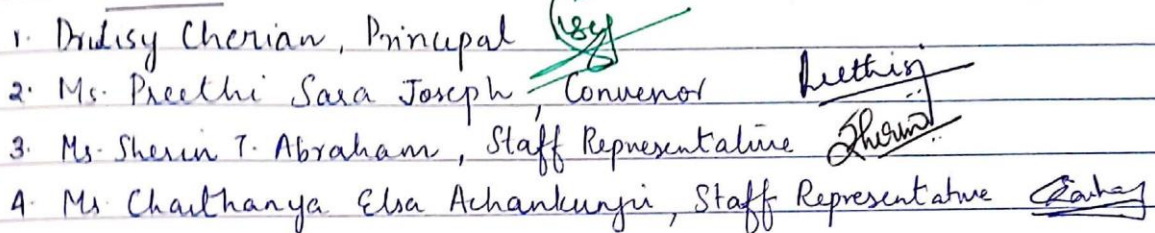 1. Dr. Lisy Cherian, Principal Lisy
2. Ms. Preethi Sara Joseph, Convenor Preethisj
3. Ms. Sherin T. Abraham, Staff Representative Sherin
4. Ms Chaithanya Elsa Achankunju, Staff Representative